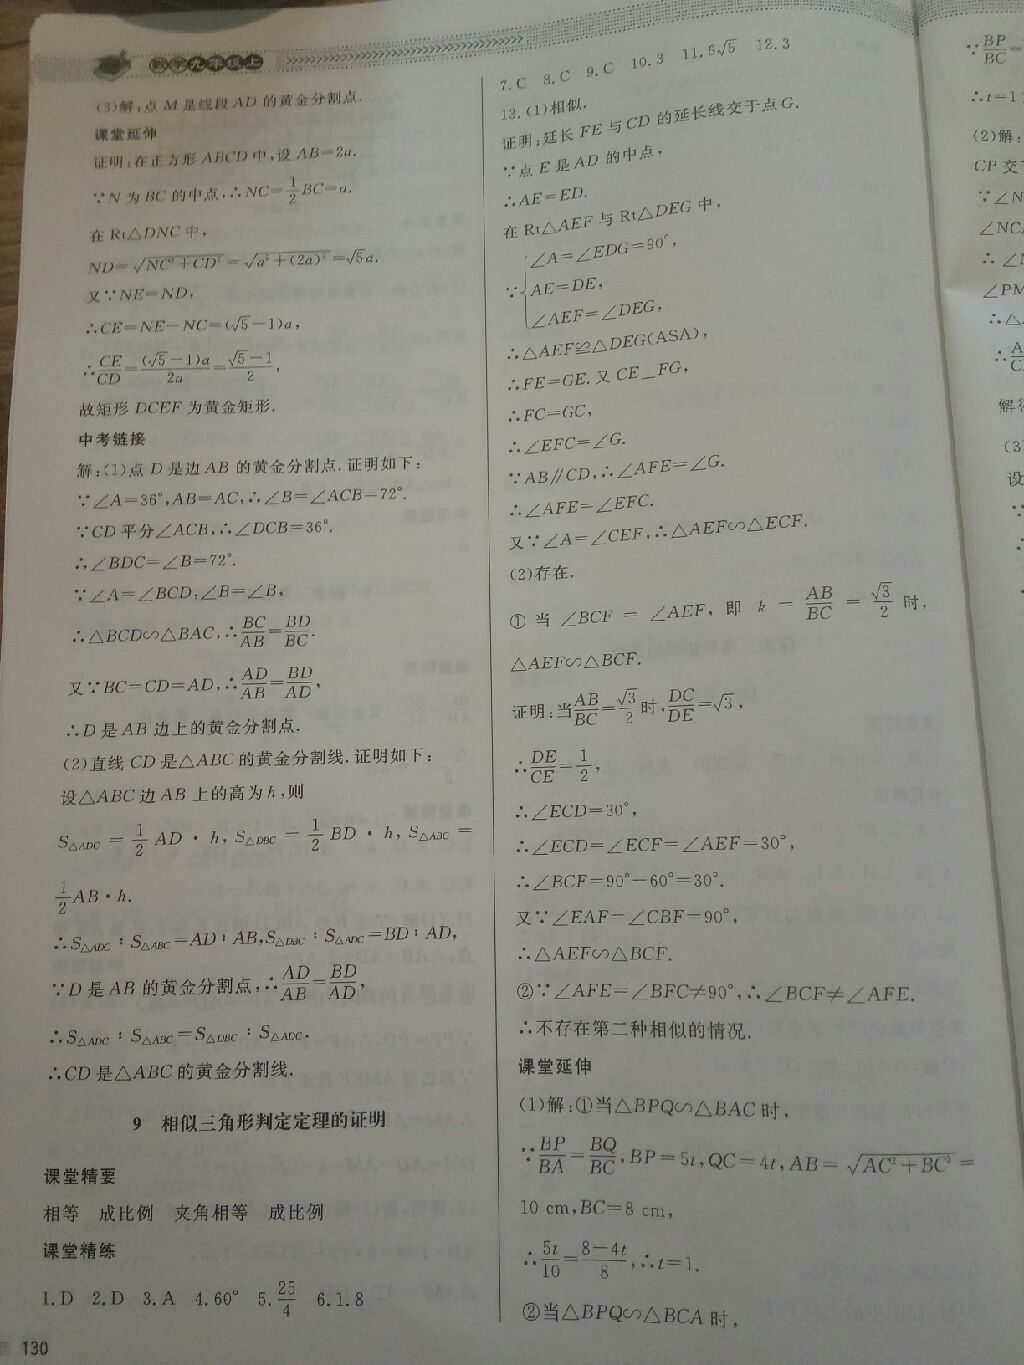 数学九年级上
(3)解:点 M 是线段 AD 的黄金分割点.
课堂延伸
证明:在正方形 ABCD 中,设 AB=2a.
∵N 为 BC 的中点,∴NC=1/2BC=a.
在 Rt△DNC 中,
ND=√(NC²+CD²)=√(a²+(2a)²)=√5a.
又∵NE=ND,
∴CE=NE-NC=(√5-1)a,
∴CE/CD=(√5-1)a/2a=(√5-1)/2,
故矩形 DCEF 为黄金矩形.
中考链接
解:(1)点 D 是边 AB 的黄金分割点.证明如下:
∵∠A=36°,AB=AC,∴∠B=∠ACB=72°.
∵CD 平分∠ACB,∴∠DCB=36°.
∴∠BDC=∠B=72°.
∵∠A=∠BCD,∠B=∠B,
∴△BCD∽△BAC,∴BC/AB=BD/BC.
又∵BC=CD=AD,∴AD/AB=BD/AD,
∴D 是 AB 边上的黄金分割点.
(2)直线 CD 是△ABC 的黄金分割线.证明如下:
设△ABC 边 AB 上的高为 h,则
S△ADC=1/2 AD·h,S△DBC=1/2 BD·h,S△ABC=
1/2 AB·h.
∴S△ADC:S△ABC=AD:AB,S△DBC:S△ADC=BD:AD,
∵D 是 AB 的黄金分割点,∴AD/AB=BD/AD,
∴S△ADC:S△ABC=S△DBC:S△ADC.
∴CD 是△ABC 的黄金分割线.
9 相似三角形判定定理的证明
课堂精要
相等 成比例 夹角相等 成比例
课堂精练
1.D 2.D 3.A 4.60° 5.25/4 6.1.8
130
7.C 8.C 9.C 10.3 11.6√5 12.3
13.(1)相似.
证明:延长 FE 与 CD 的延长线交于点 G.
∵点 E 是 AD 的中点,
∴AE=ED.
在 Rt△AEF 与 Rt△DEG 中,
∠A=∠EDG=90°,
∵AE=DE,
∠AEF=∠DEG,
∴△AEF≌△DEG(ASA),
∴FE=GE.又 CE⊥FG,
∴FC=GC,
∴∠EFC=∠G.
∵AB∥CD,∴∠AFE=∠G.
∴∠AFE=∠EFC.
又∵∠A=∠CEF,∴△AEF∽△ECF.
(2)存在.
①当 ∠BCF = ∠AEF, 即 k = AB/BC = √3/2 时,
△AEF∽△BCF.
证明:当AB/BC=√3/2时,DC/DE=√3,
∴DE/CE=1/2,
∴∠ECD=30°,
∴∠ECD=∠ECF=∠AEF=30°,
∴∠BCF=90°-60°=30°.
又∵∠EAF=∠CBF=90°,
∴△AEF∽△BCF.
②∵∠AFE=∠BFC≠90°,∴∠BCF≠∠AFE.
∴不存在第二种相似的情况.
课堂延伸
(1)解:①当△BPQ∽△BAC 时,
∵BP/BA=BQ/BC,BP=5t,QC=4t,AB=√(AC²+BC²)=
10 cm,BC=8 cm,
∴5t/10=(8-4t)/8,∴t=1.
②当△BPQ∽△BCA 时,
∵BP/BC=
∴t=1
(2)解:
CP 交
∵∠N
∠NC
∴∠N
∠PM
∴△
∴
解得
(3
设